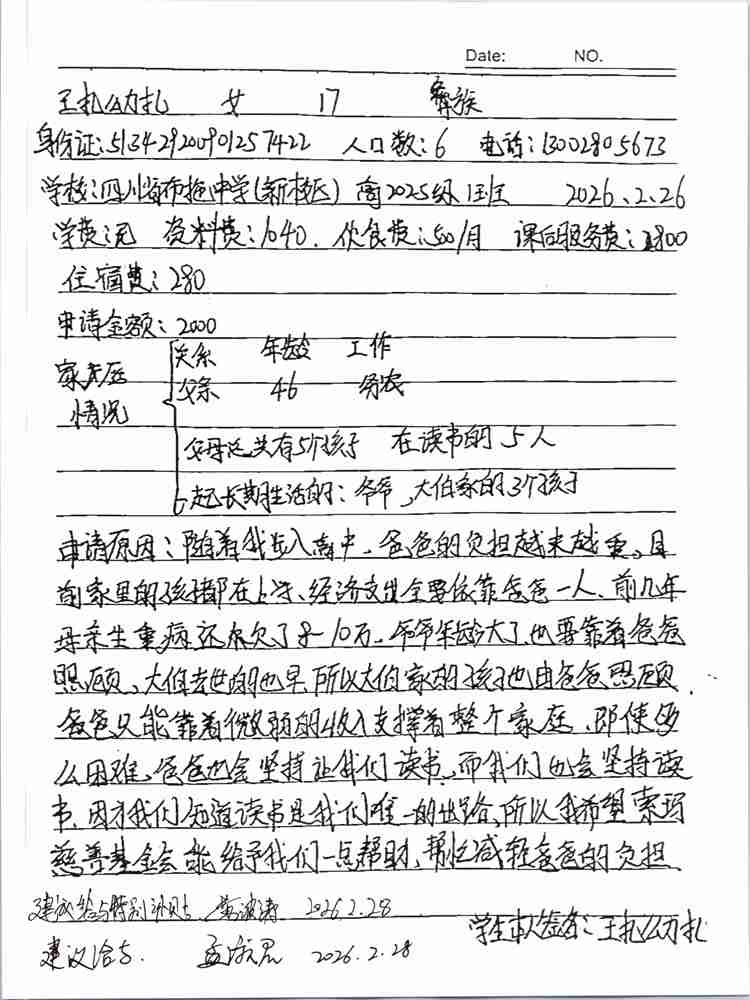 Date: NO.
王扎么力扎 女 17 彝族
身份证:513429200901257422 人口数:6 电话:13002805673
学校:四川省布拖中学(新校区) 高2025级1班 2026.2.26
学费:无 资料费:1040. 伙食费:500/月 课后服务费:1800
住宿费:280
申请金额:2000
家庭情况
关系 年龄 工作
父亲 46 务农
父母总共有5个孩子 在读书的5人
一起长期生活的:爷爷,大伯家的3个孩子
申请原因:随着我步入高中,爸爸的负担越来越重。目
前家里的孩子都在上学、经济支出全要依靠爸爸一人、前几年
母亲生重病还欠了8-10万、爷爷年龄大了也要靠着爸爸
照顾、大伯去世的也早、所以大伯家的孩子也由爸爸照顾
爸爸只能靠着微弱的收入支撑着整个家庭、即使多
么困难、爸爸也会坚持让我们读书、而我们也会坚持读
书、因为我们知道读书是我们唯一的出路、所以我希望索玛
慈善基金会能给予我们一点帮助、帮忙减轻爸爸的负担.
建议给与特别补贴 2026.2.28
学生本人签名:王扎么力扎
建议给与. 2026.2.28